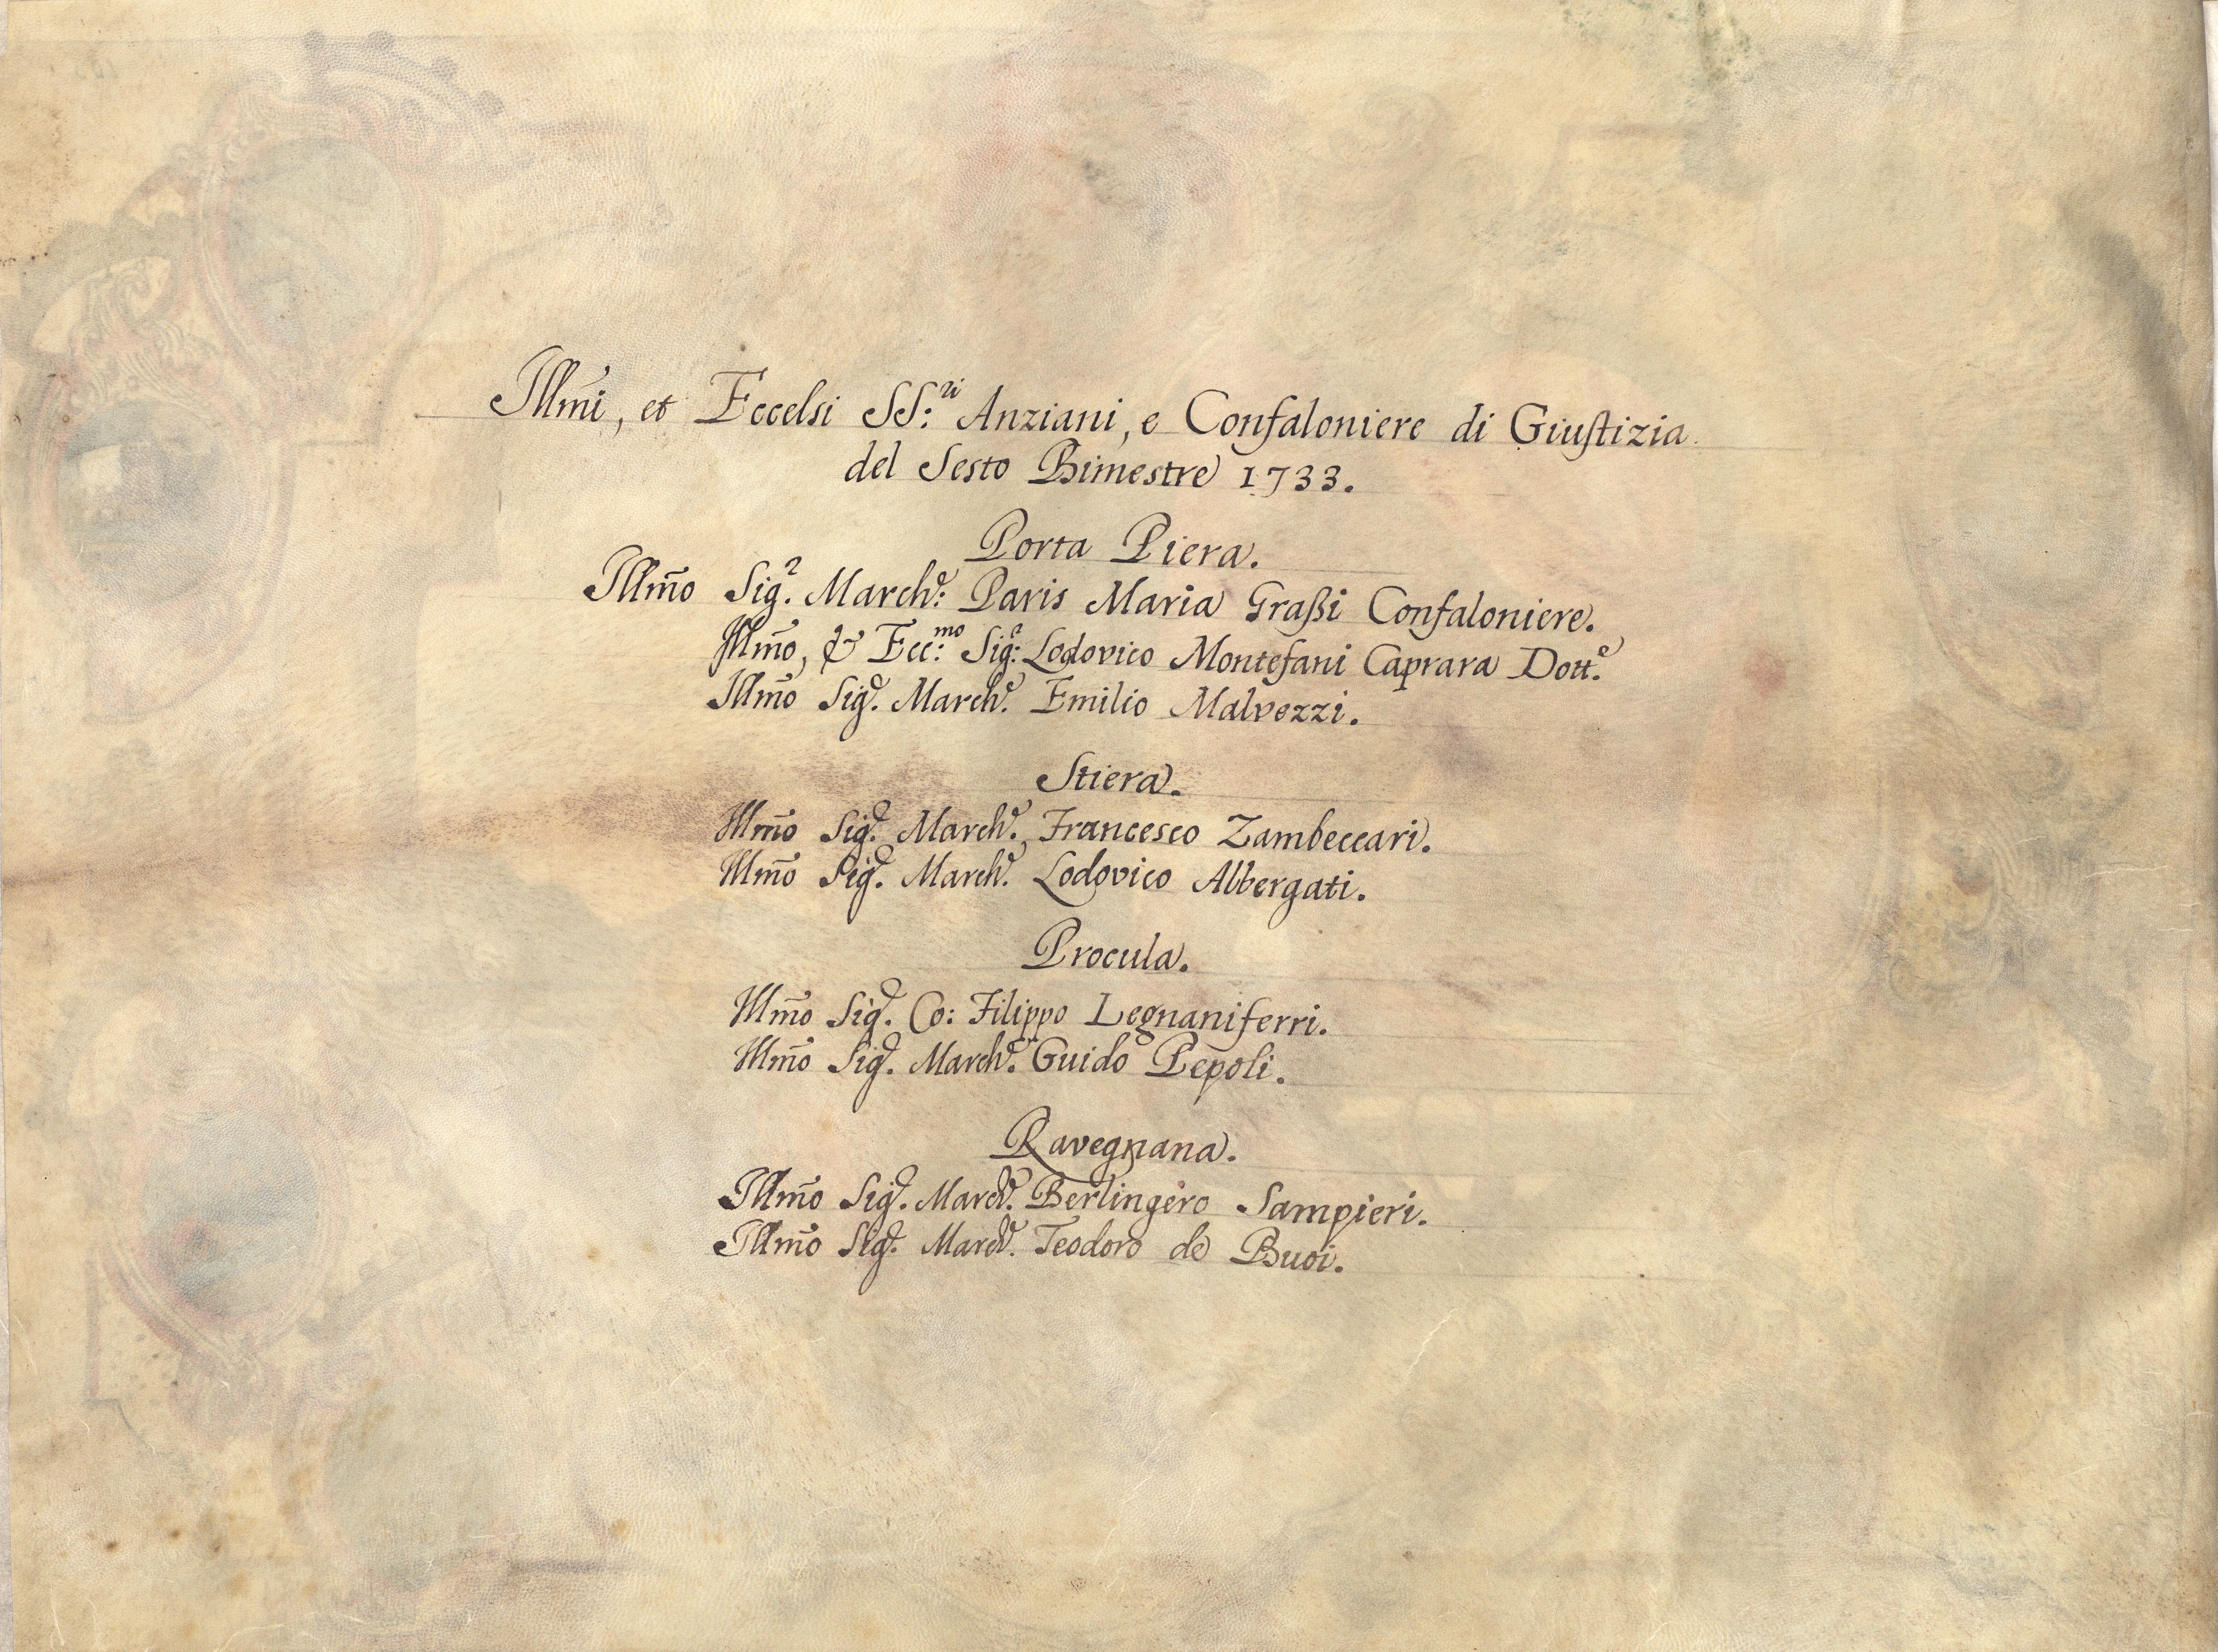 Illm̃i, et Eccelsi SS:ri Anziani, e Confaloniere di Giustizia
del Sesto Bimestre 1733.
Porta Piera.
Illm̃o Sigr. Marche: Paris Maria Graßi Confaloniere.
Illm̃o, & Ecc:mo Sigr: Lodovico Montefani Caprara Dotte.
Illm̃o Sigr. Marche. Emilio Malvezzi.
Stiera.
Illm̃o Sigr. Marche. Francesco Zambeccari.
Illm̃o Sigr. Marche. Lodovico Albergati.
Procula.
Illm̃o Sigr. Co: Filippo Legnaniferri.
Illm̃o Sigr. Marche. Guido Pepoli.
Ravegnana.
Illm̃o Sigr. Marche. Berlingero Sampieri.
Illm̃o Sigr. Marche. Teodoro de Buoi.